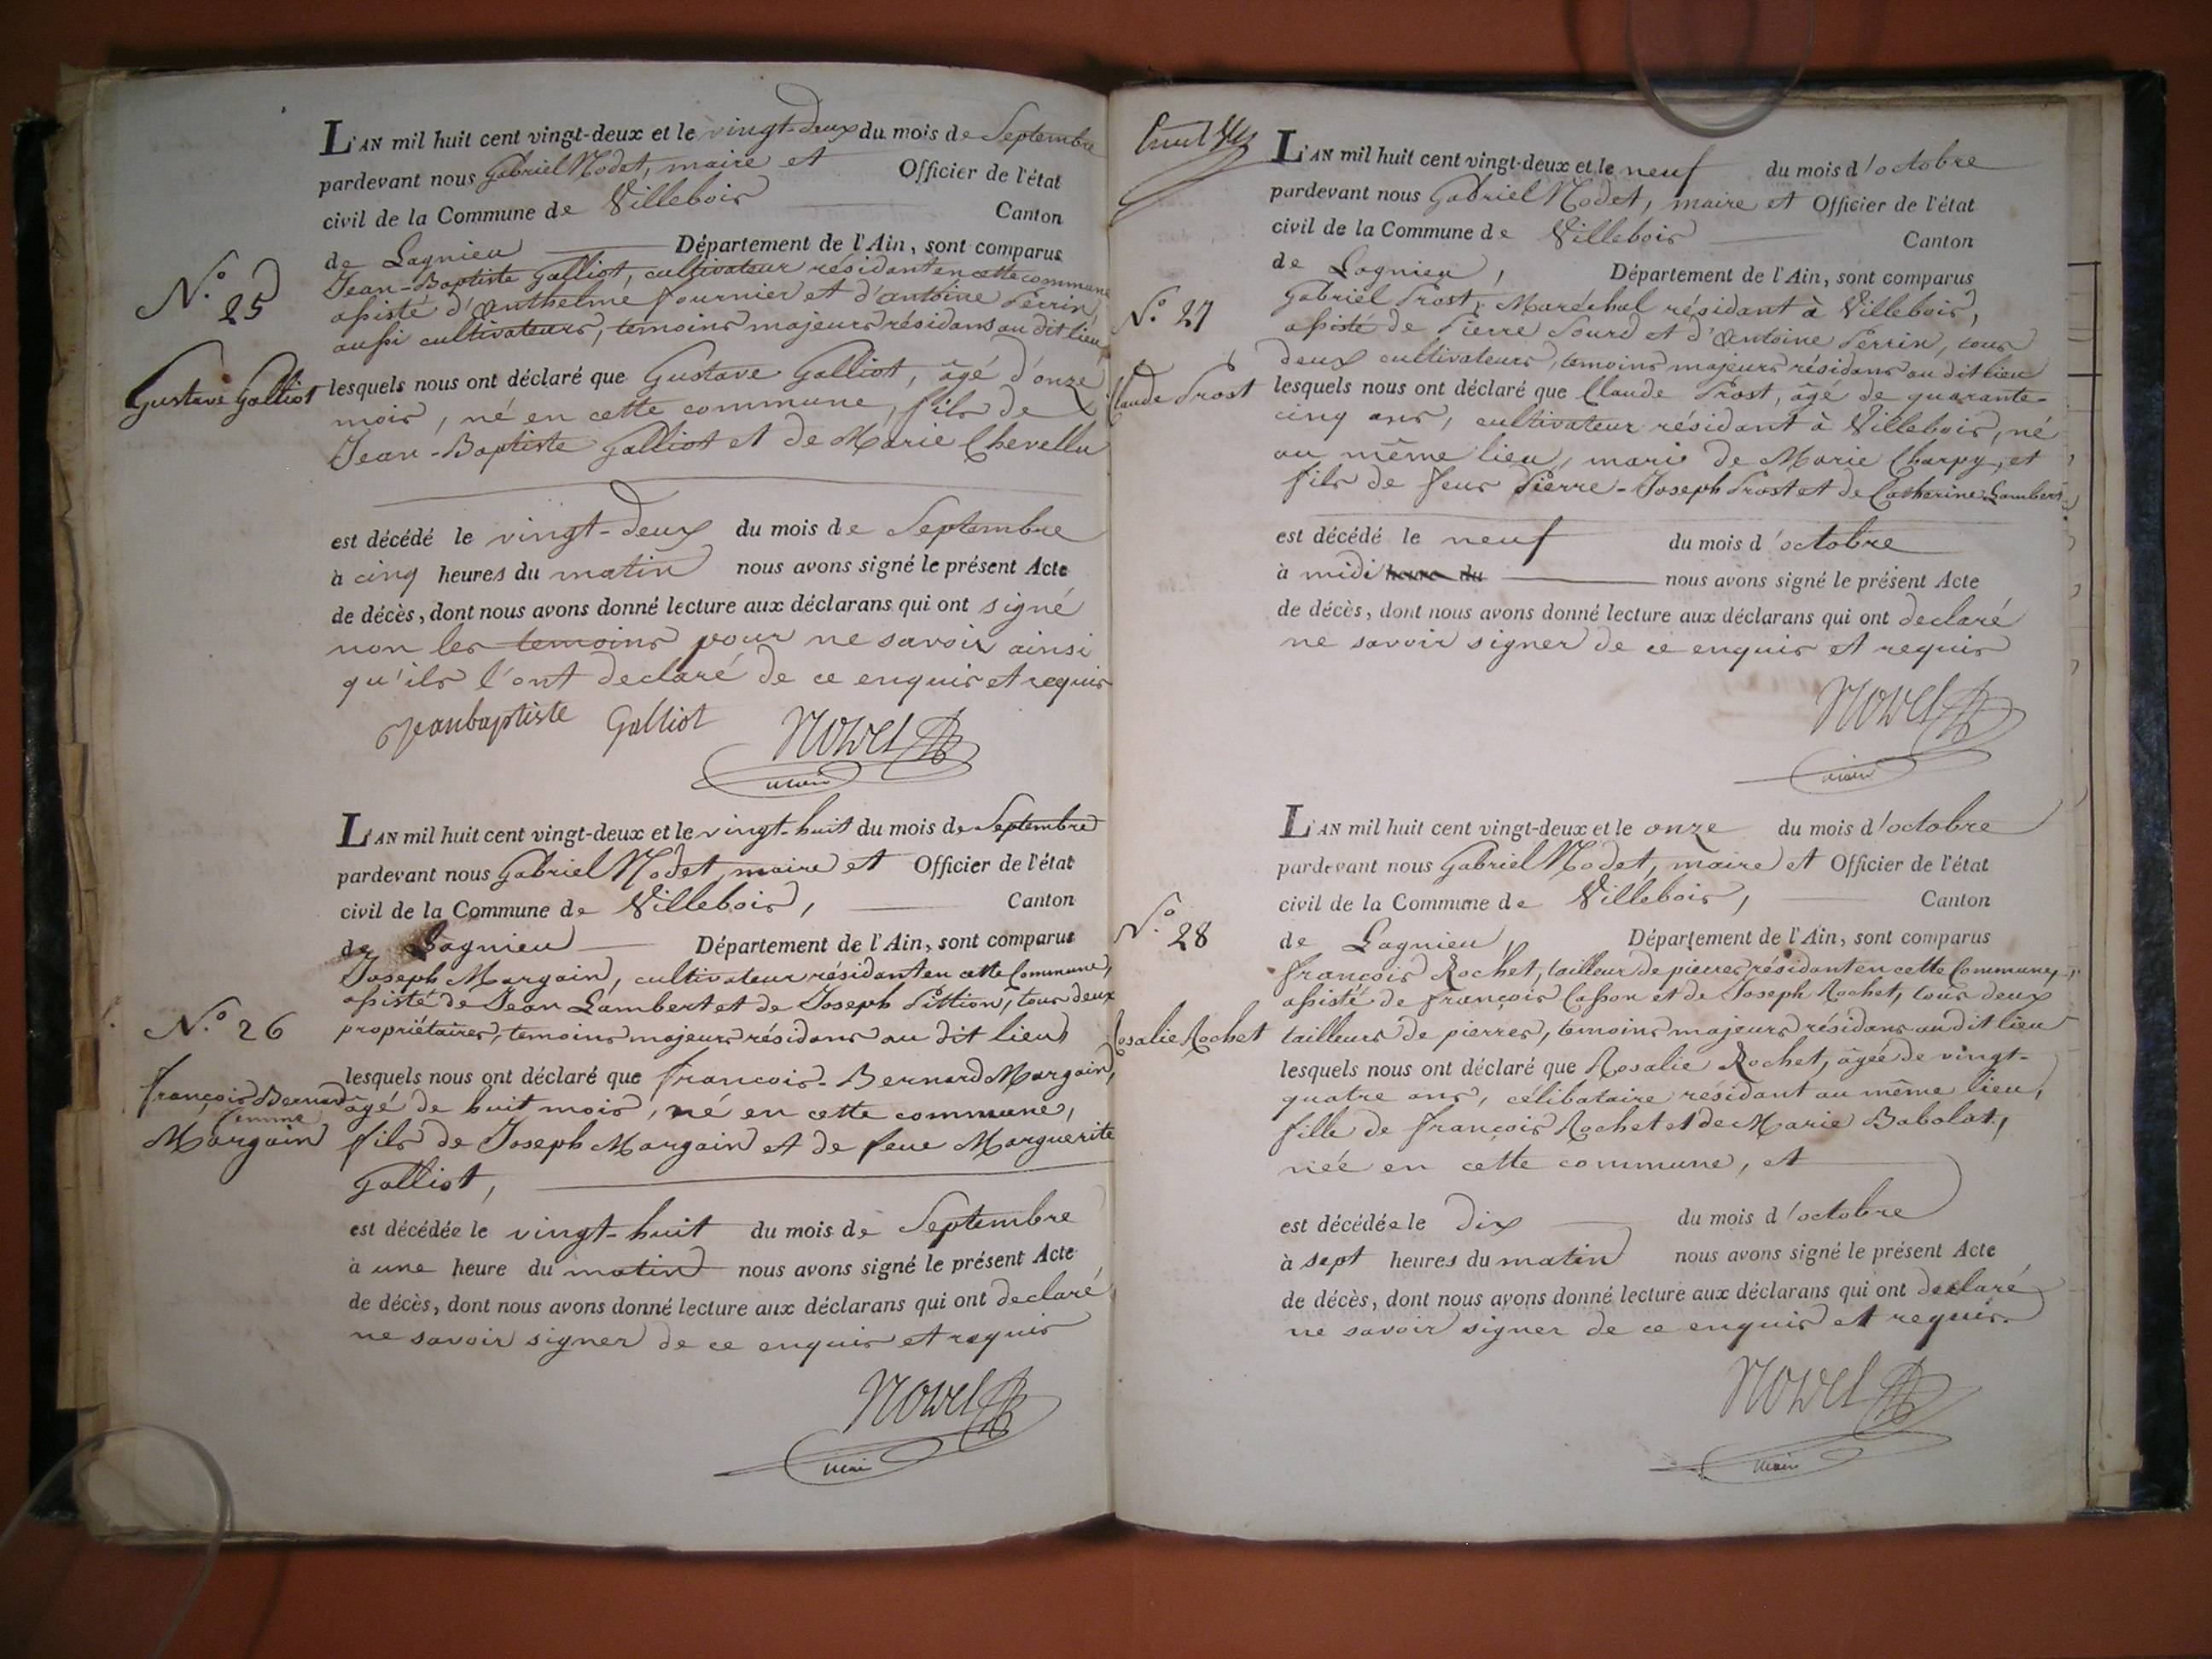 L'AN mil huit cent vingt-deux et le vingt-deux du mois de Septembre
pardevant nous Gabriel Nodet, maire et Officier de l'état
civil de la Commune de Villebois Canton
de Lagnieu Département de l'Ain, sont comparus
Jean-Baptiste Galliot, cultivateur résidant en cette commune
assisté d'Anthelme fournier et d'antoine Perrin,
aussi cultivateurs, temoins majeurs résidans au dit lieu
N.º 25
Gustave Galliot
lesquels nous ont déclaré que Gustave Galliot, âgé d'onze
mois, né en cette commune, fils de
Jean-Baptiste Galliot et de Marie Chevellu
est décédé le vingt-deux du mois de Septembre
à cinq heures du matin nous avons signé le présent Acte
de décès, dont nous avons donné lecture aux déclarans qui ont signé
non les temoins pour ne savoir ainsi
qu'ils l'ont declaré de ce enquis et requis
Jeanbaptiste Galliot
maire
L'AN mil huit cent vingt-deux et le vingt-huit du mois de Septembre
pardevant nous Gabriel Nodet, maire et Officier de l'état
civil de la Commune de Villebois, Canton
de Lagnieu Département de l'Ain, sont comparus
Joseph Margain, cultivateur résidant en cette Commune,
assisté de Jean Lambert et de Joseph Pittion, tous deux
propriétaires, temoins majeurs résidans au dit lieu
N.º 26
François Bernard
Margain
lesquels nous ont déclaré que françois-Bernard Margain,
âgé de huit mois, né en cette commune,
fils de Joseph Margain et de feue Marguerite
Galliot,
est décédée le vingt-huit du mois de Septembre
à une heure du matin nous avons signé le présent Acte
de décès, dont nous avons donné lecture aux déclarans qui ont declaré
ne savoir signer de ce enquis et requis
L'AN mil huit cent vingt-deux et le neuf du mois d'octobre
pardevant nous Gabriel Nodet, maire et Officier de l'état
civil de la Commune de Villebois Canton
de Lagnieu, Département de l'Ain, sont comparus
Gabriel Prost, Maréchal résidant à Villebois,
assisté de Pierre Sourd et d'Antoine Perrin, tous
deux cultivateurs, temoins majeurs résidans au dit lieu
N.º 27
Claude Prost
lesquels nous ont déclaré que Claude Prost, âgé de quarante-
cinq ans, cultivateur résidant à Villebois, né
au même lieu, mari de Marie Charpy, et
fils de feus Pierre-Joseph Prost et de Catherine Lambert
est décédé le neuf du mois d'octobre
à midi heure du nous avons signé le présent Acte
de décès, dont nous avons donné lecture aux déclarans qui ont declaré
ne savoir signer de ce enquis et requis
maire
L'AN mil huit cent vingt-deux et le onze du mois d'octobre
pardevant nous Gabriel Nodet, maire et Officier de l'état
civil de la Commune de Villebois, Canton
de Lagnieu, Département de l'Ain, sont comparus
françois Rochet, tailleur de pierres résidant en cette Commune,
assisté de françois Casson et de Joseph Rochet, tous deux
tailleurs de pierres, temoins majeurs résidans au dit lieu
N.º 28
Rosalie Rochet
lesquels nous ont déclaré que Rosalie Rochet, âgée de vingt-
quatre ans, célibataire résidant au même lieu,
fille de françois Rochet et de Marie Babolat,
née en cette commune, et
est décédée le dix du mois d'octobre
à sept heures du matin nous avons signé le présent Acte
de décès, dont nous avons donné lecture aux déclarans qui ont declaré
ne savoir signer de ce enquis et requis.
maire